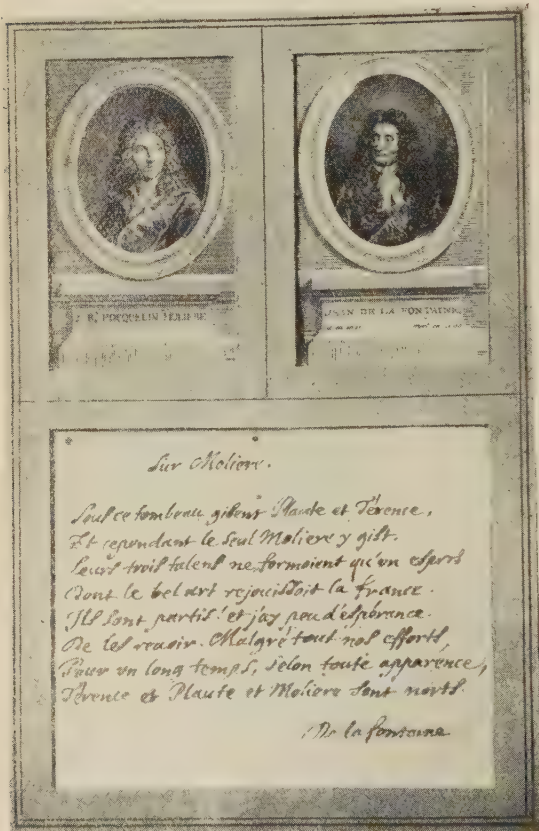 J. B. POCQUELIN MOLIERE
JEAN DE LA FONTAINE
Sur Moliere.
Sous ce tombeau gisent Plaute et Térence,
Et cependant le seul Moliere y gist.
Leurs trois talens ne formoient qu'un esprit
Dont le bel art rejouissoit la france.
Ils sont partis! et j'ay peu d'espérance
De les revoir. Malgré tout nos efforts,
Pour un long temps, selon toute apparence,
Térence et Plaute et Moliere sont morts.
De la fontaine